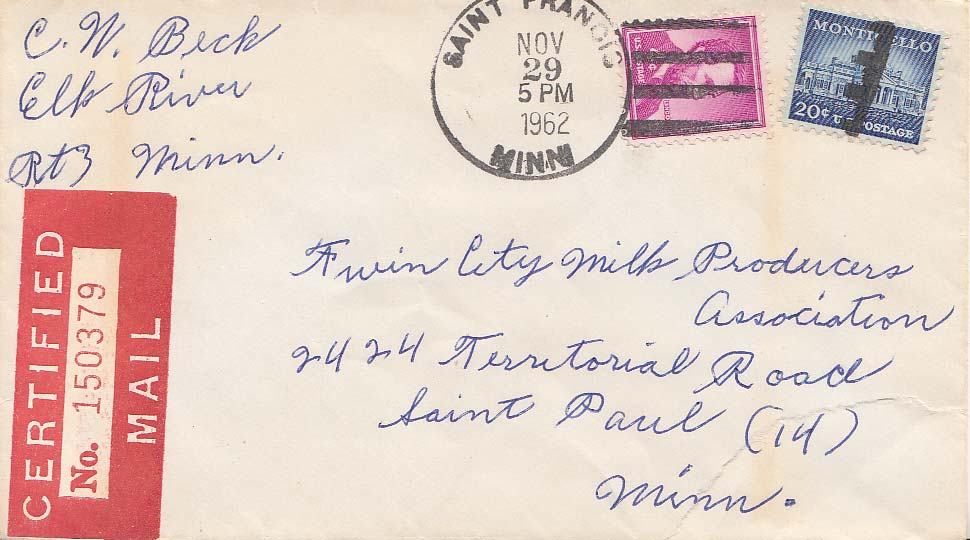 C. W. Beck
Elk River
Rt 3 Minn.
SAINT FRANCIS
NOV
29
5 PM
1962
MINN
MONTICELLO
20¢ U.S. POSTAGE
CERTIFIED
No. 150379
MAIL
Twin City Milk Producers
Association
2424 Territorial Road
Saint Paul (14)
Minn.